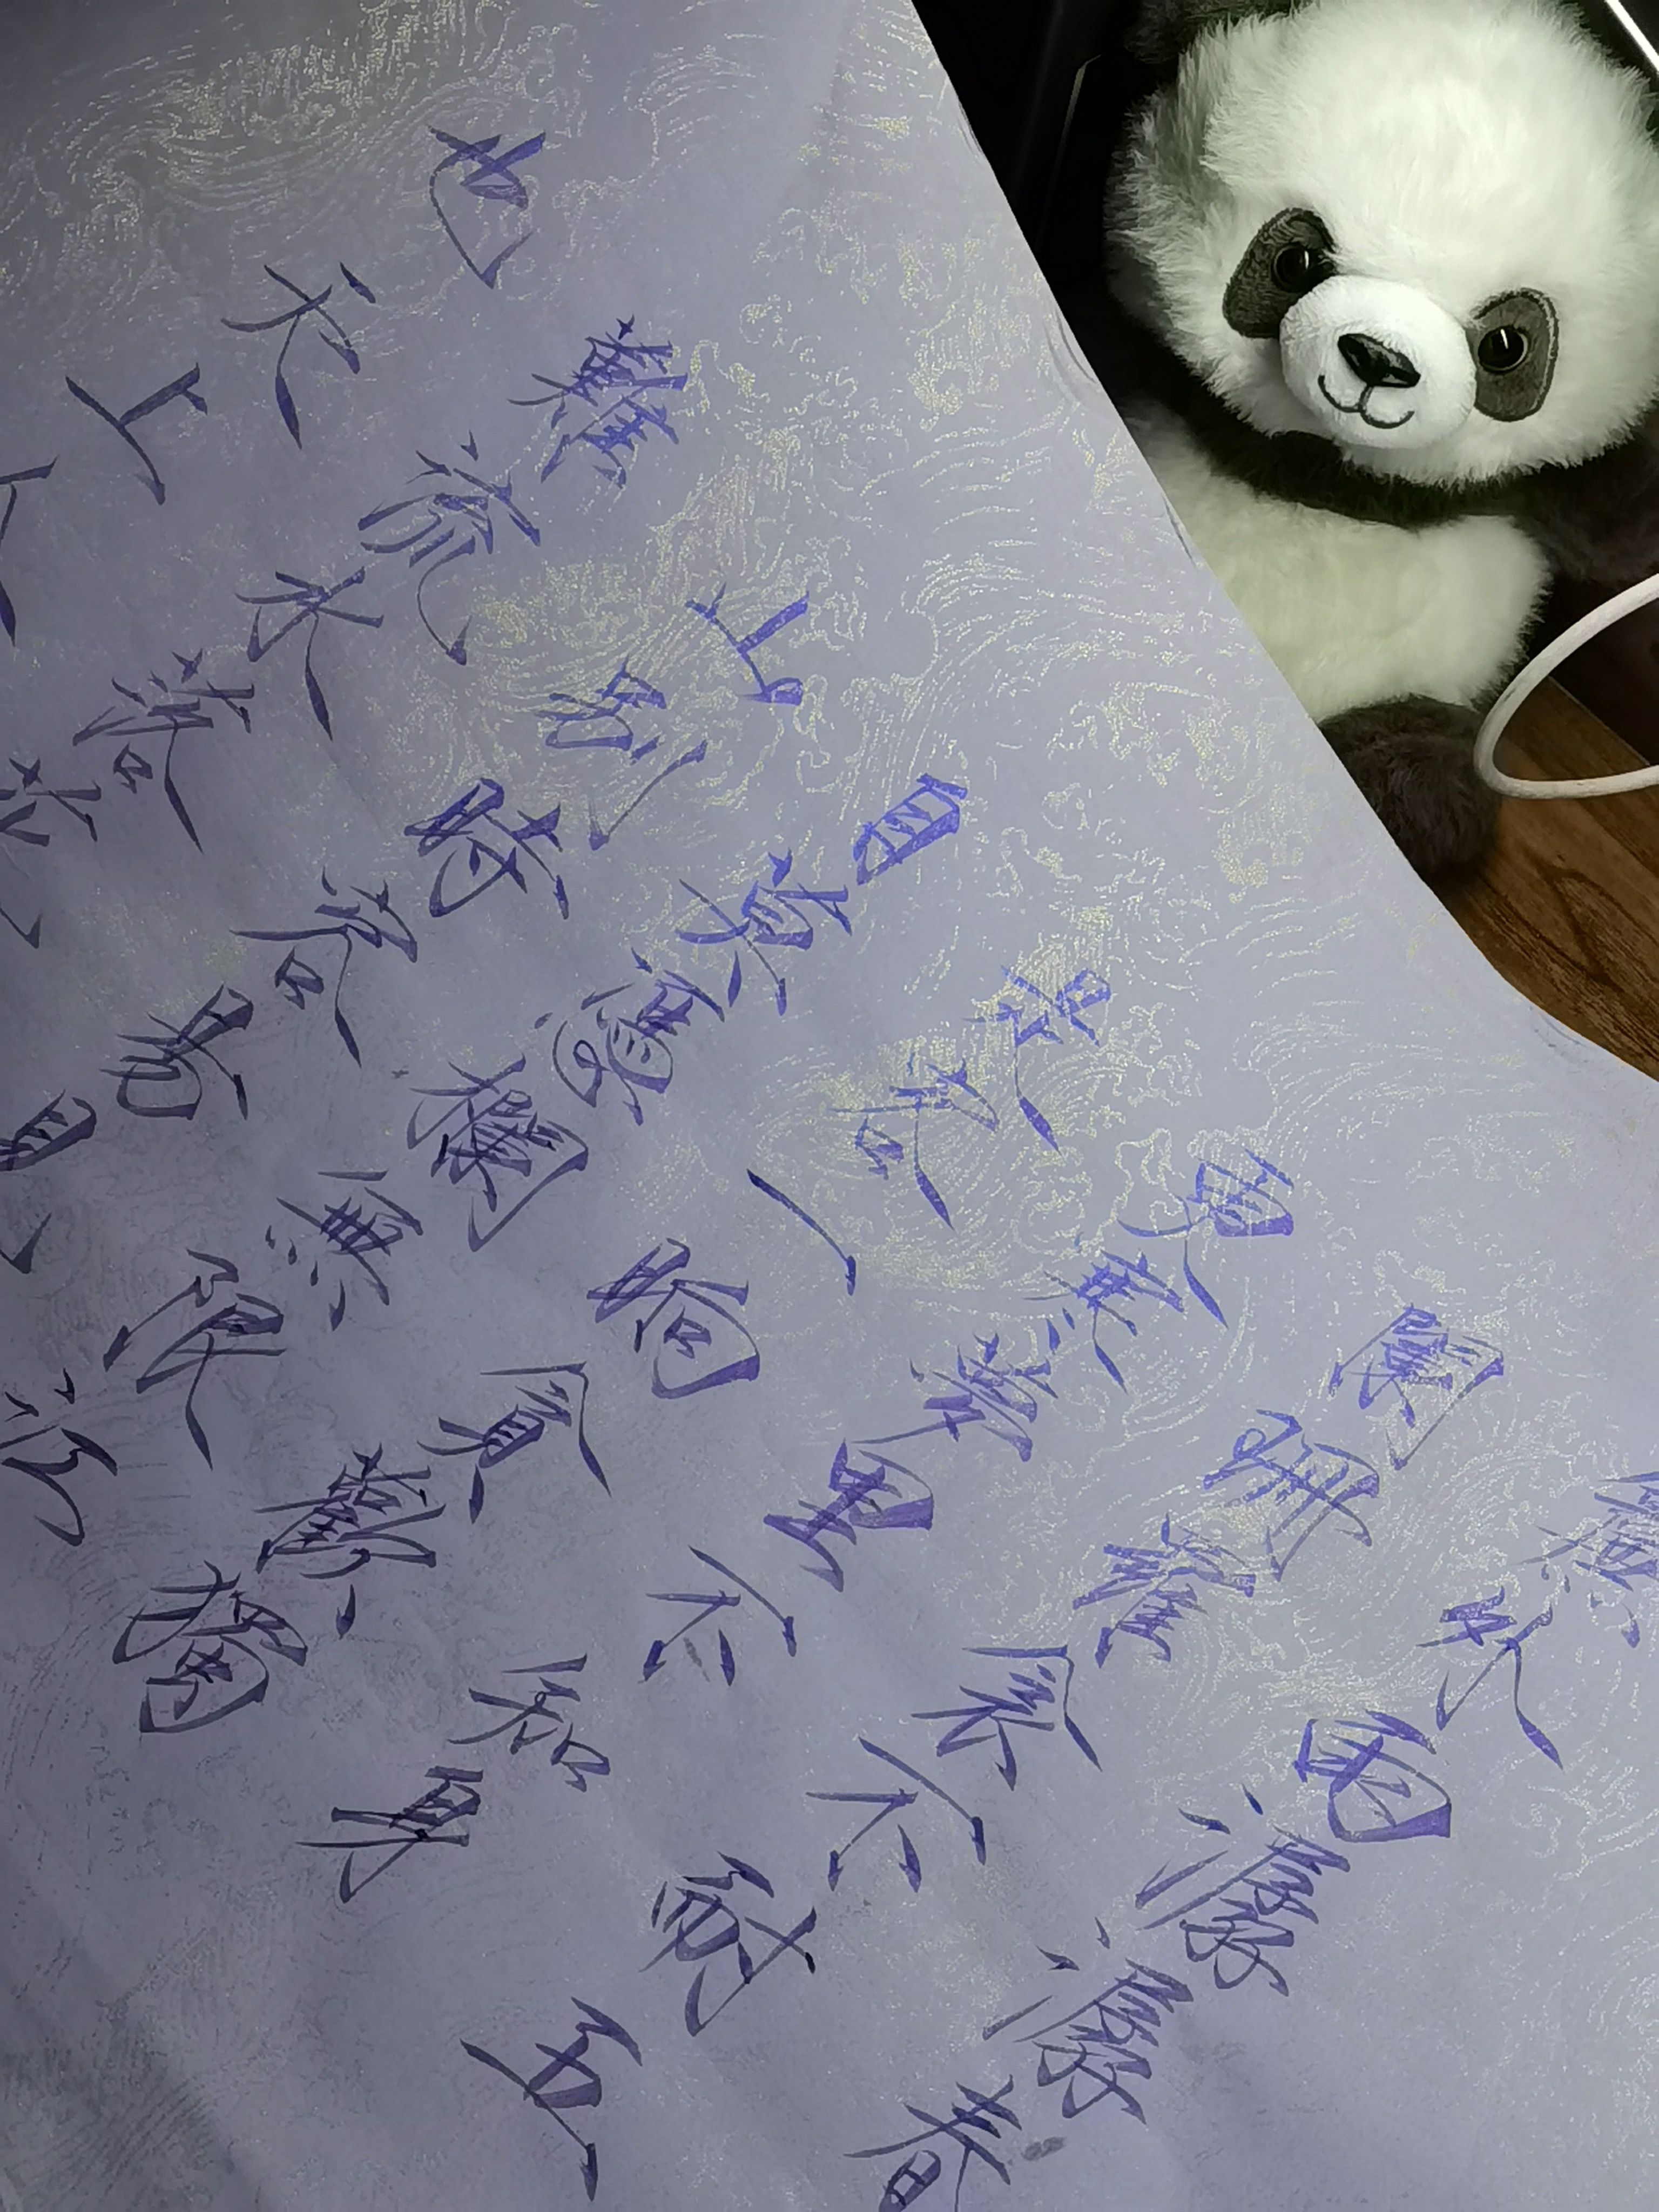 簾外雨潺潺春
闌珊羅衾不耐五
更寒夢裏不知身
是客一晌貪歡獨
自莫憑欄無限江
山別時容易見
難流水落花
也天上人